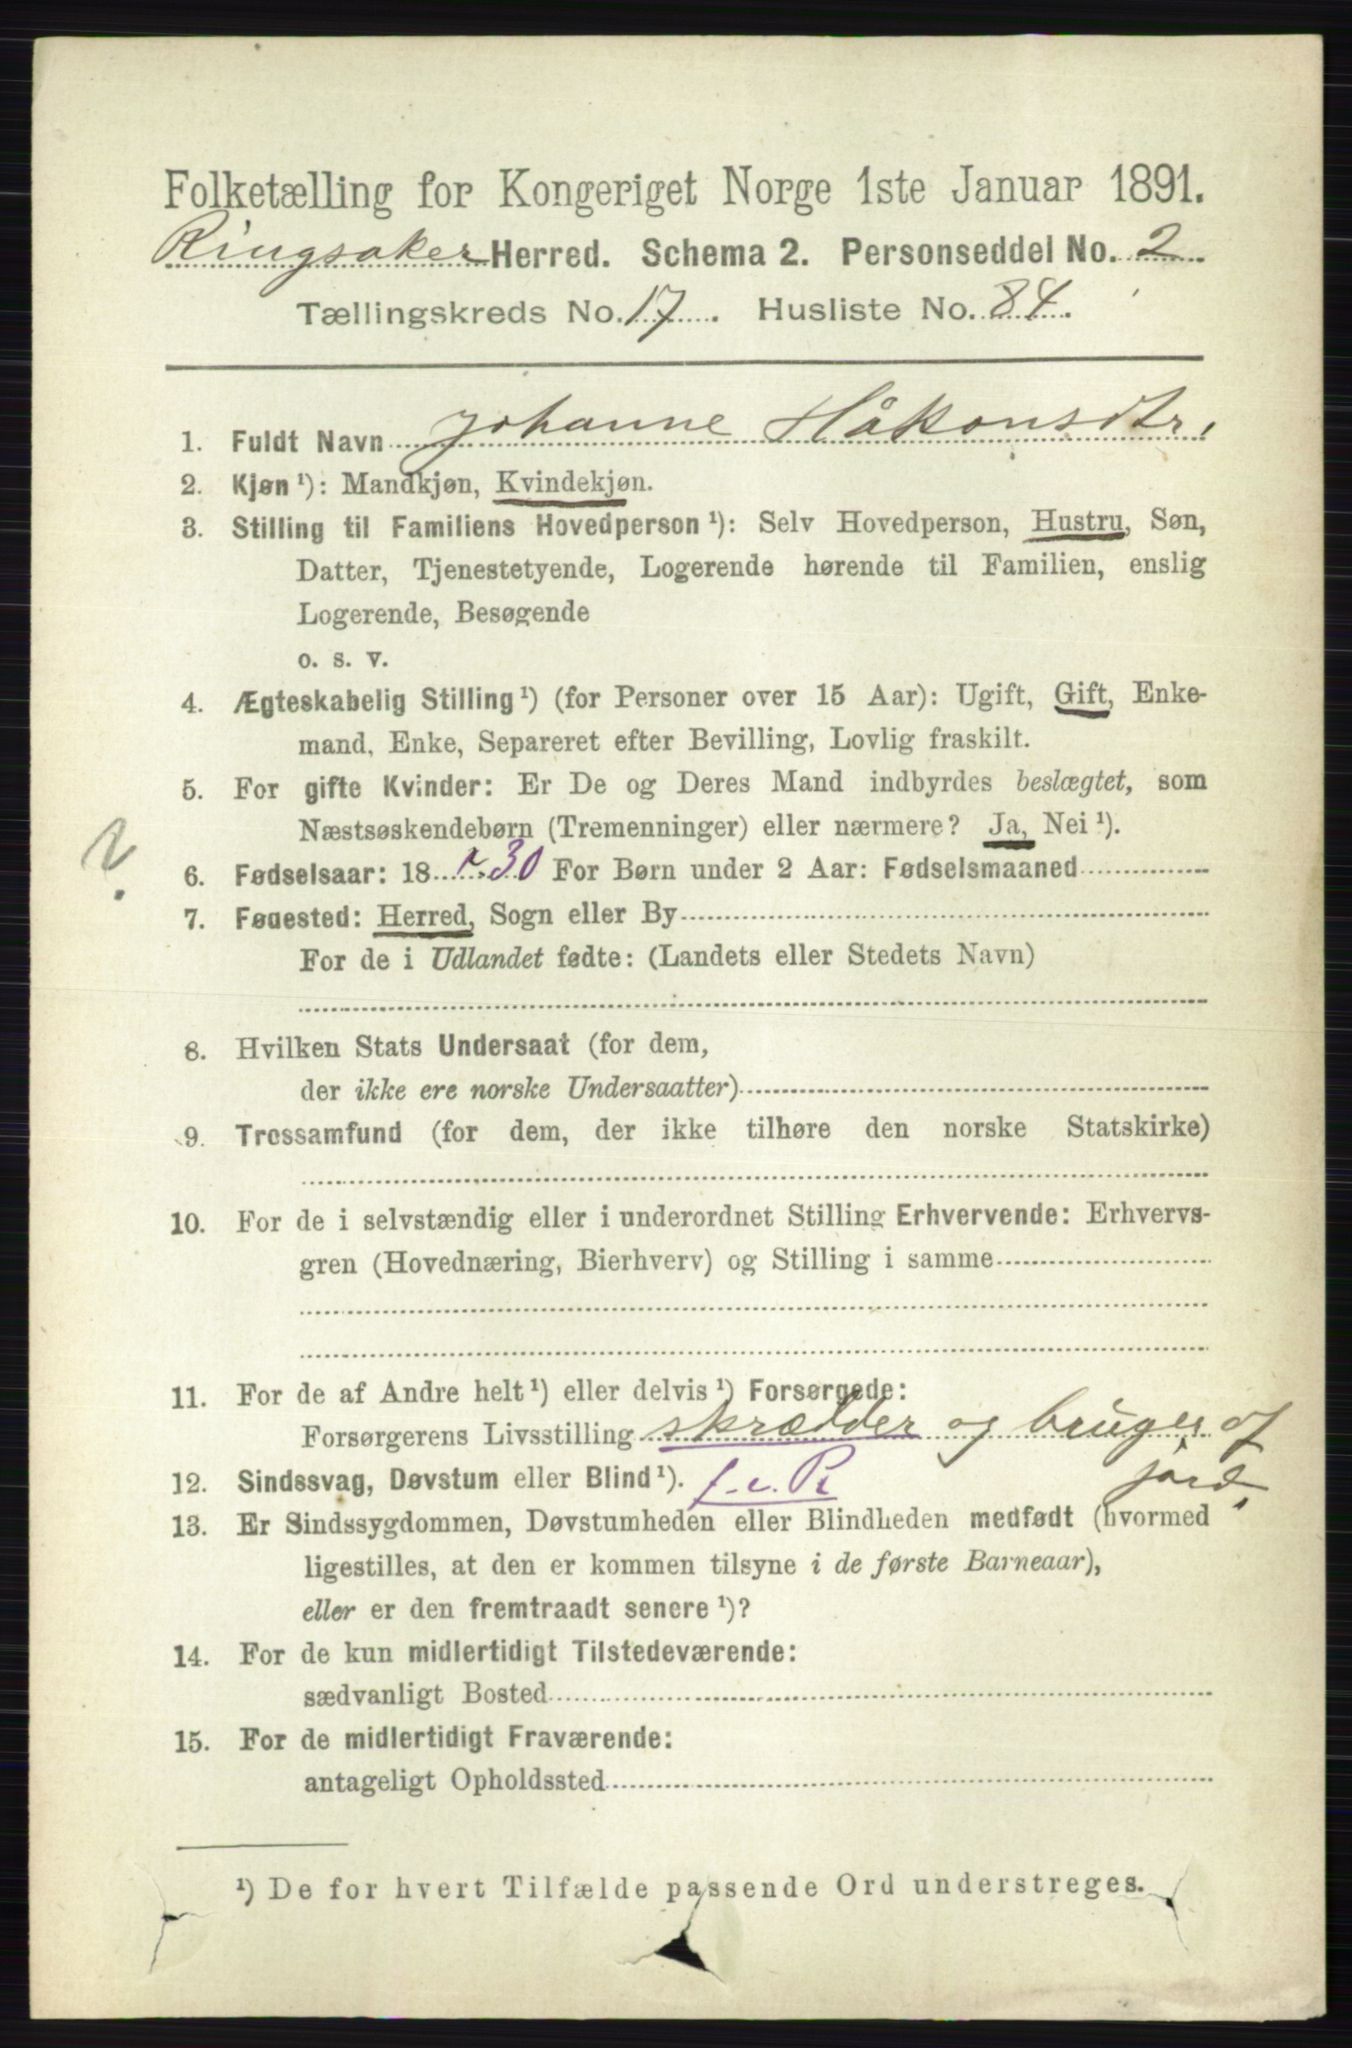 Folketælling for Kongeriget Norge 1ste Januar 1891.
Ringsaker Herred. Schema 2. Personseddel No. 2
Tællingskreds No. 17. Husliste No. 84.
1. Fuldt Navn Johanne Håkonsdtr.
2. Kjøn ¹): Mandkjøn, Kvindekjøn.
3. Stilling til Familiens Hovedperson ¹): Selv Hovedperson, Hustru, Søn,
Datter, Tjenestetyende, Logerende hørende til Familien, enslig
Logerende, Besøgende
o. s. v.
4. Ægteskabelig Stilling ¹) (for Personer over 15 Aar): Ugift, Gift, Enke-
mand, Enke, Separeret efter Bevilling, Lovlig fraskilt.
5. For gifte Kvinder: Er De og Deres Mand indbyrdes beslægtet, som
Næstsøskendebørn (Tremenninger) eller nærmere? Ja, Nei ¹).
?
6. Fødselsaar: 18 30 For Børn under 2 Aar: Fødselsmaaned
7. Fødested: Herred, Sogn eller By
For de i Udlandet fødte: (Landets eller Stedets Navn)
8. Hvilken Stats Undersaat (for dem,
der ikke ere norske Undersaatter)
9. Trossamfund (for dem, der ikke tilhøre den norske Statskirke)
10. For de i selvstændig eller i underordnet Stilling Erhvervende: Erhvervs-
gren (Hovednæring, Bierhverv) og Stilling i samme
11. For de af Andre helt ¹) eller delvis ¹) Forsørgede:
Forsørgerens Livsstilling skrædder og bruger af
jord.
12. Sindssvag, Døvstum eller Blind ¹).
13. Er Sindssygdommen, Døvstumheden eller Blindheden medfødt (hvormed
ligestilles, at den er kommen tilsyne i de første Barneaar),
eller er den fremtraadt senere ¹)?
14. For de kun midlertidigt Tilstedeværende:
sædvanligt Bosted
15. For de midlertidigt Fraværende:
antageligt Opholdssted
¹) De for hvert Tilfælde passende Ord understreges.